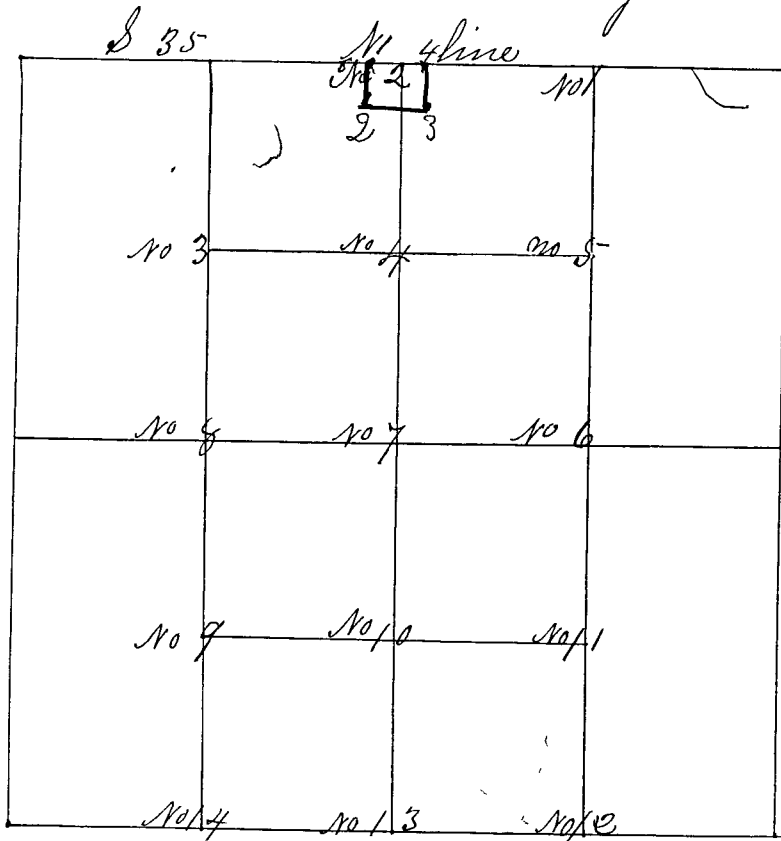 S 35 N1 4 line
No 2 No 1
2 3
No 3 No 4 no 5
No 8 No 7 No 6
No 9 No 10 No 11
No 14 No 13 No 12